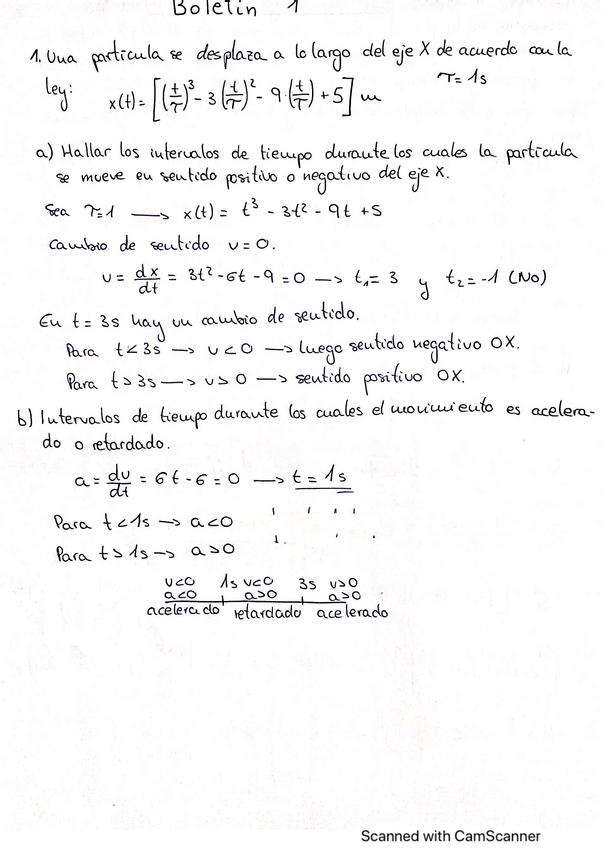 Boletín 1
1. Una partícula se desplaza a lo largo del eje X de acuerdo con la
ley: x(t) = [(t/τ)³ - 3(t/τ)² - 9·(t/τ) + 5] m τ = 1s
a) Hallar los intervalos de tiempo durante los cuales la partícula
se mueve en sentido positivo o negativo del eje X.
Sea τ=1 → x(t) = t³ - 3t² - 9t + 5
Cambio de sentido v = 0.
v = dx/dt = 3t² - 6t - 9 = 0 → t₁ = 3 y t₂ = -1 (No)
En t = 3s hay un cambio de sentido.
Para t < 3s → v < 0 → luego sentido negativo OX.
Para t > 3s → v > 0 → sentido positivo OX.
b) Intervalos de tiempo durante los cuales el movimiento es acelera-
do o retardado.
a = dv/dt = 6t - 6 = 0 → t = 1s
Para t < 1s → a < 0
Para t > 1s → a > 0
v<0 1s v<0 3s v>0
a<0 a>0 a>0
acelerado retardado acelerado
Scanned with CamScanner